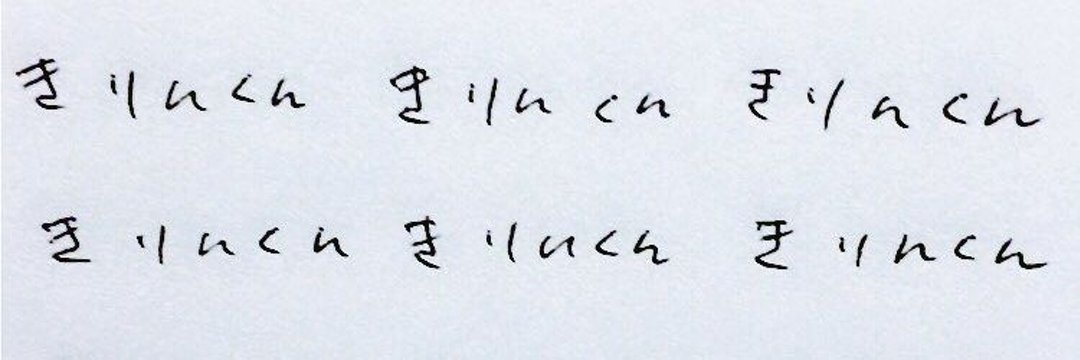 きりんくん きりんくん きりんくん
きりんくん きりんくん きりんくん